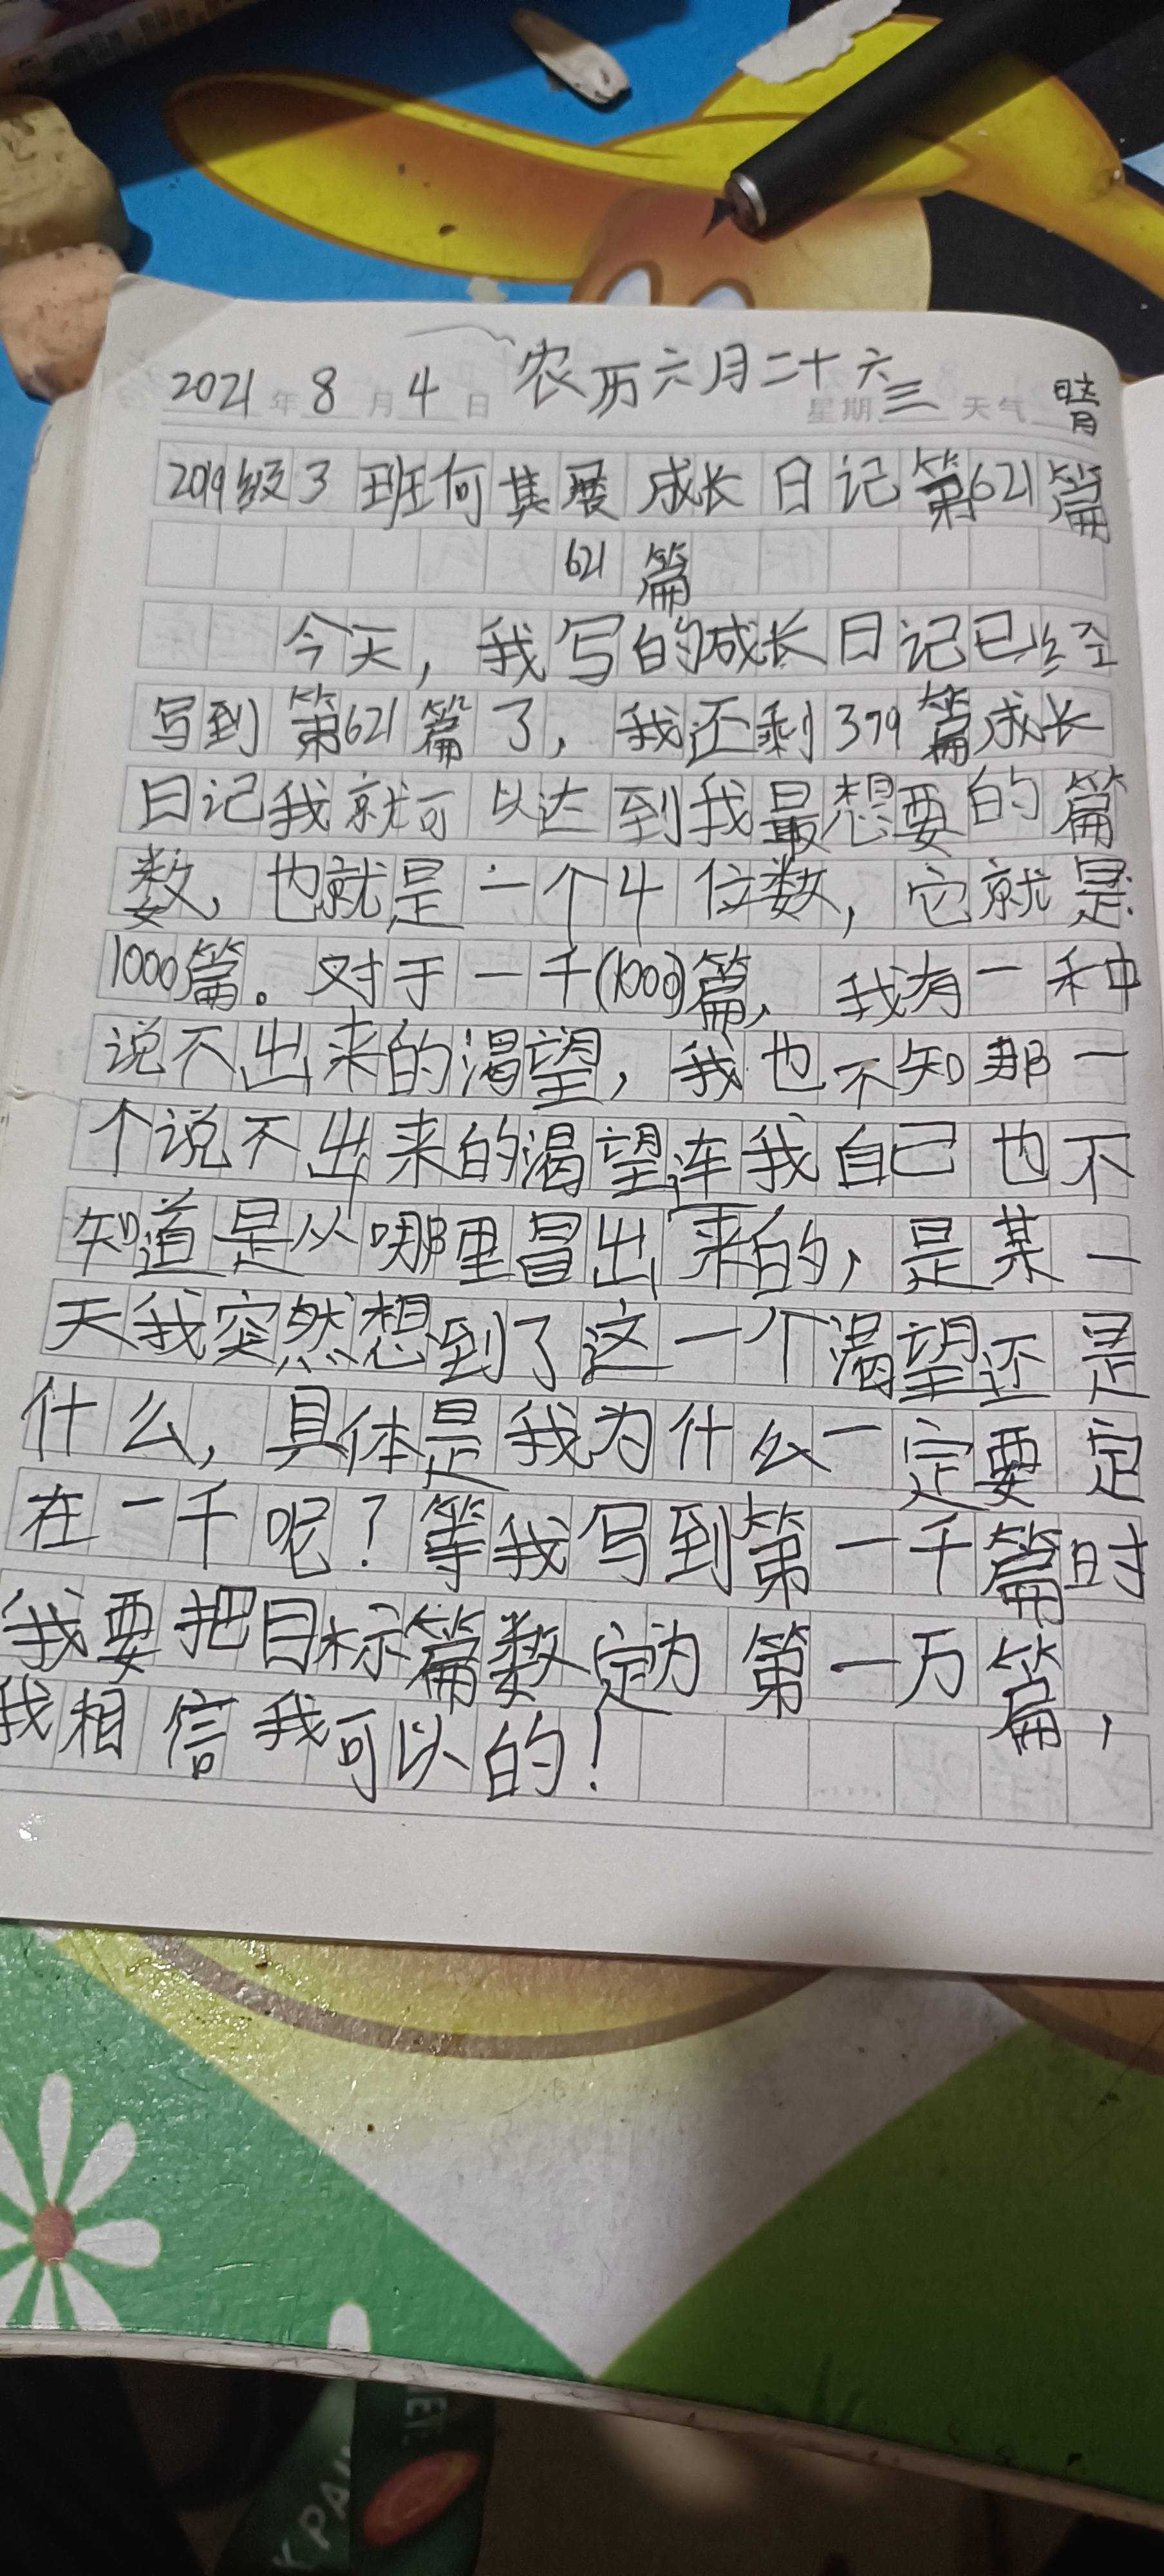 2021年8月4日 农历六月二十六 星期三 天气 晴
2019级3班何其展成长日记第621篇
621篇
今天，我写的成长日记已经
写到第621篇了，我还剩379篇成长
日记我就可以达到我最想要的篇
数，也就是一个4位数，它就是
1000篇。对于一千(1000)篇，我有一种
说不出来的渴望，我也不知那一
个说不出来的渴望连我自己也不
知道是从哪里冒出来的，是某一
天我突然想到了这一个渴望还是
什么，具体是我为什么一定要定
在一千呢？等我写到第一千篇时
我要把目标篇数定为第一万篇，
我相信我可以的！